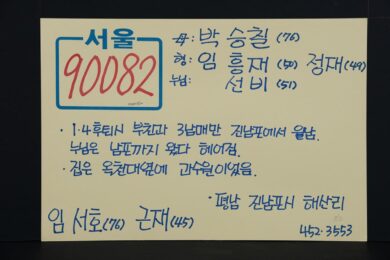 서울
90082
母: 박 승칠 (76)
형: 임 흥재 (50) 정재 (49)
누님: 선비 (51)
· 1·4후퇴시 부친과 3남매만 진남포에서 월남.
누님은 남포까지 왔다 헤어짐.
· 집은 옥천대옆에 과수원이었음.
· 평남 진남포시 해산리
임 서호(76) 근재(45)
452·3553